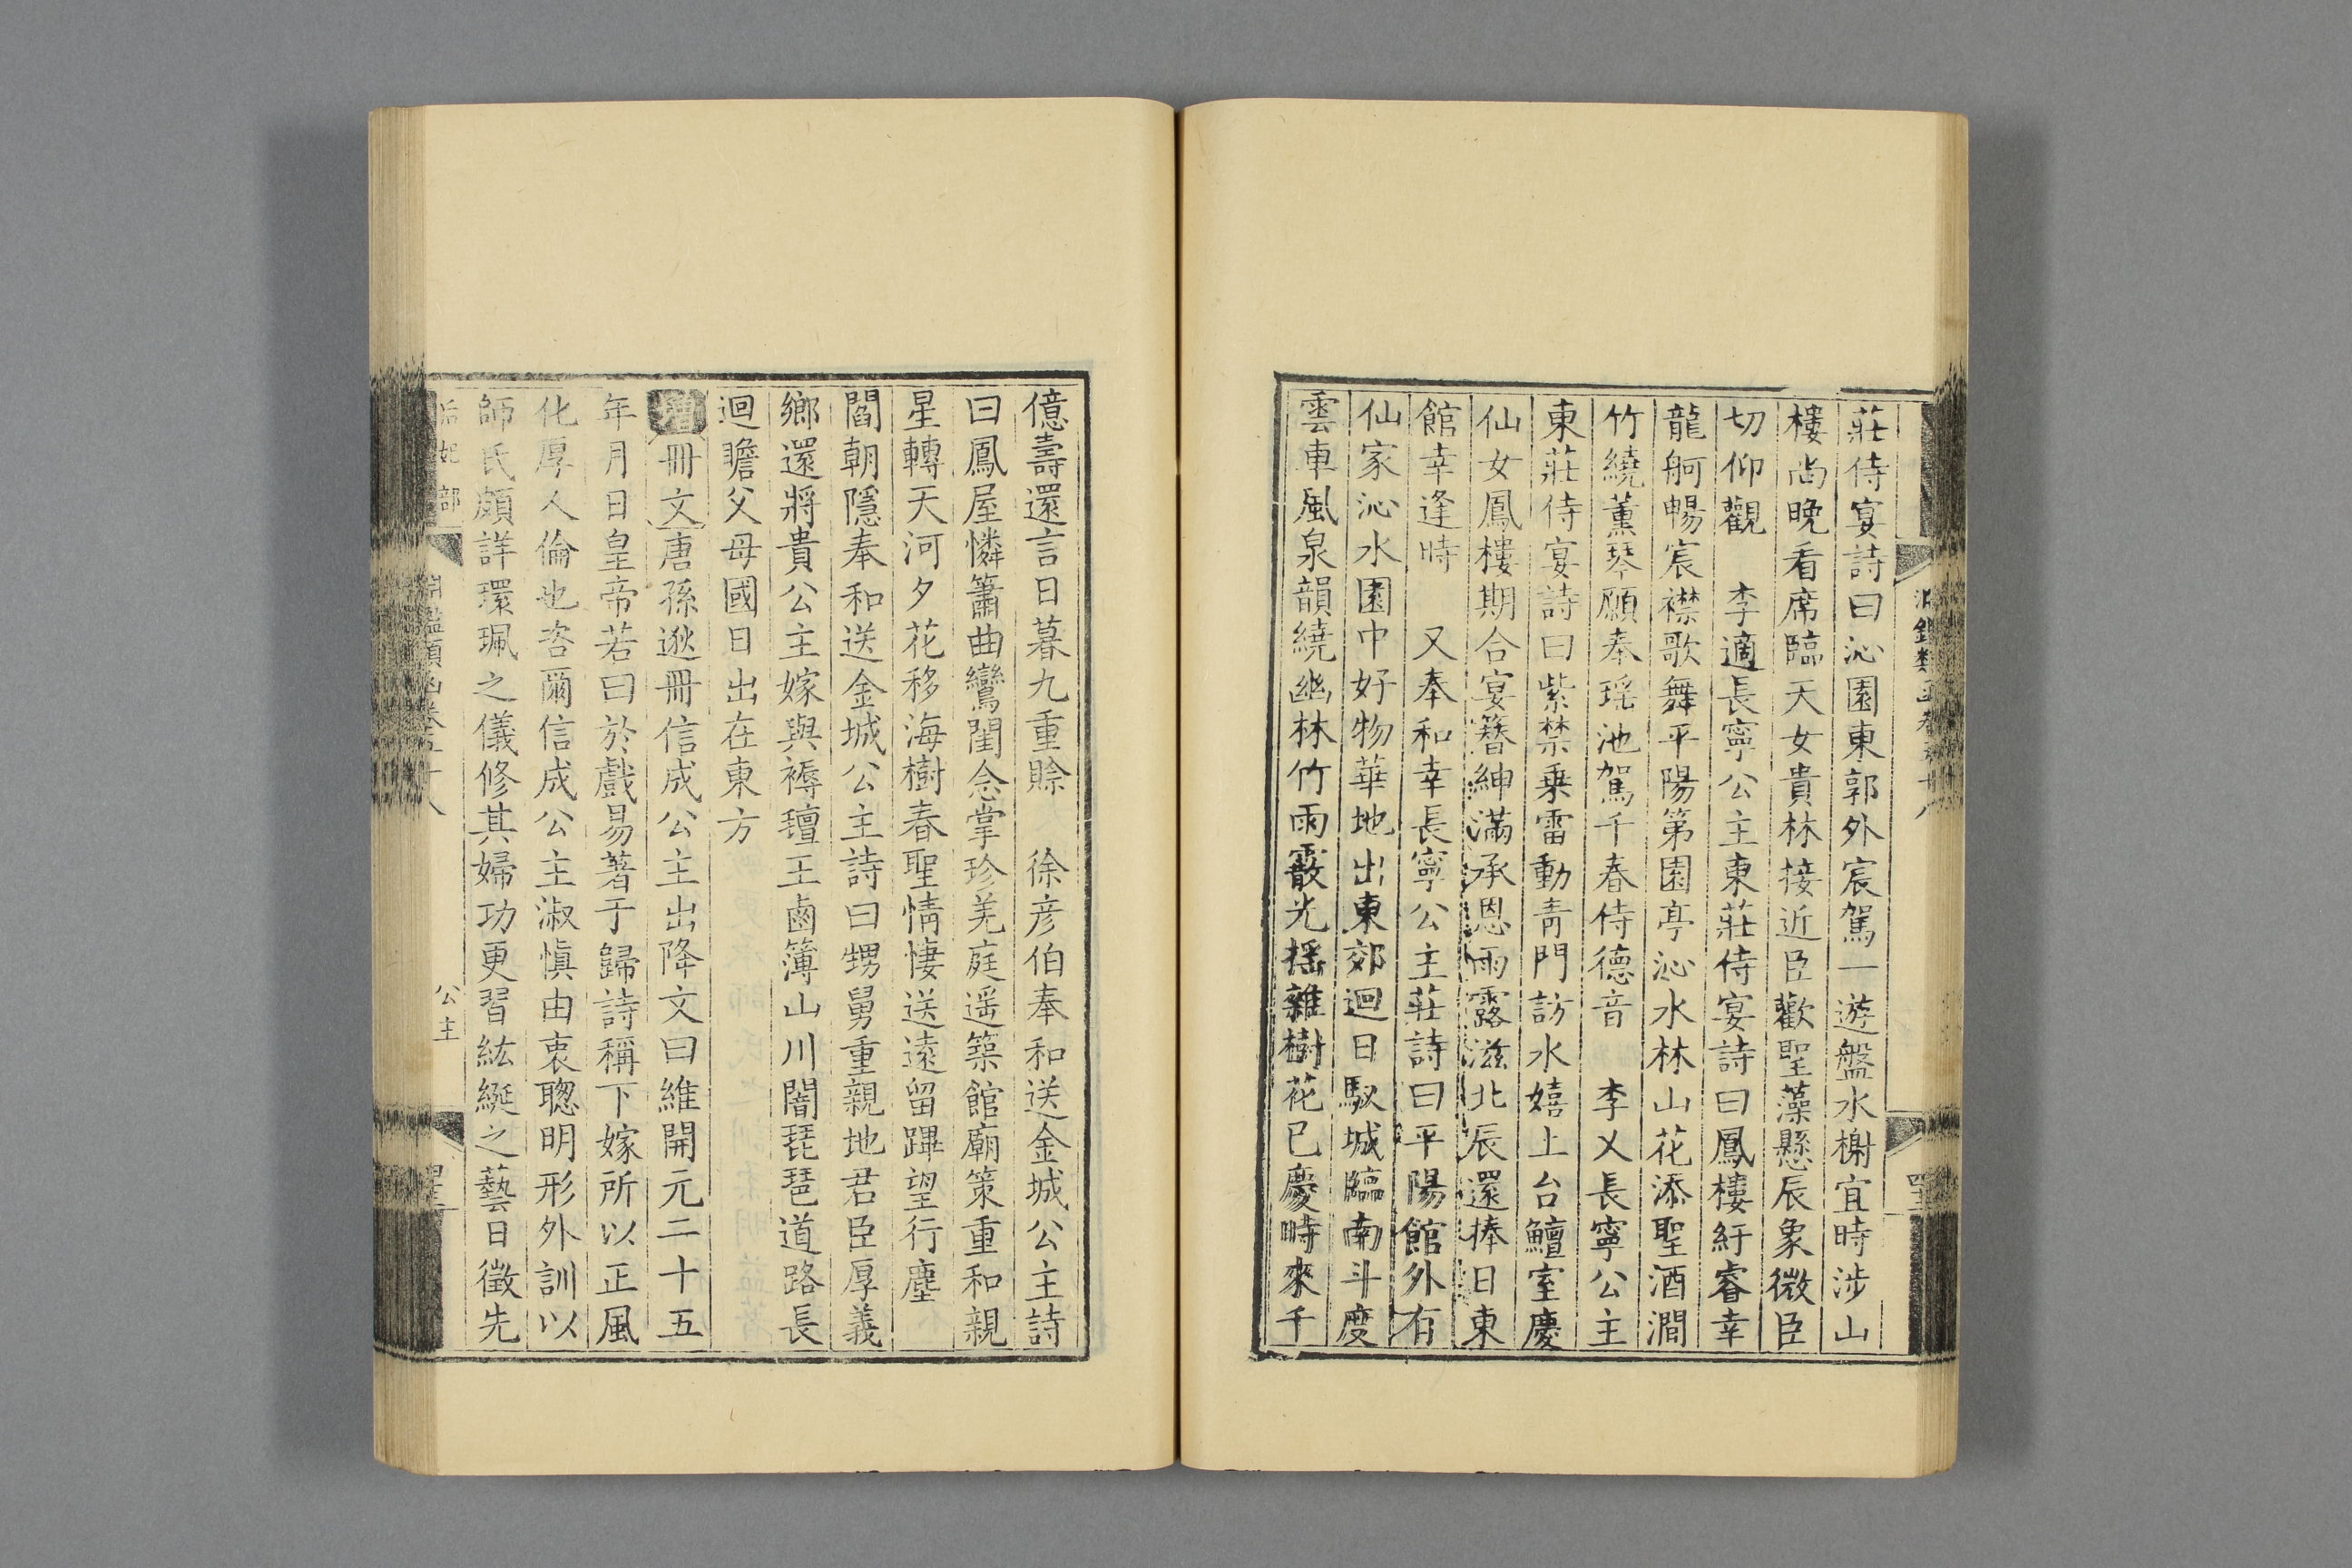 莊侍宴詩曰沁園東郭外宸駕一遊盤水榭宜時涉山
樓尚晚看席臨天女貴林接近臣歡聖藻懸辰象微臣
切仰觀　李適長寧公主東莊侍宴詩曰鳳樓紆睿幸
龍舸暢宸襟歌舞平陽第園亭沁水林山花添聖酒澗
竹繞薰琴願奉瑤池駕千春侍德音　李乂長寧公主
東莊侍宴詩曰紫禁乗雷動青門訪水嬉上台鱣室慶
仙女鳳樓期合宴簪紳滿承恩雨露滋北辰還捧日東
館幸逢時　又奉和幸長寧公主莊詩曰平陽館外有
仙家沁水園中好物華地出東郊迴日馭城臨南斗度
雲車風泉韻繞幽林竹雨霰光揺雜樹花已慶時來千
億壽還言日暮九重賒　徐彦伯奉和送金城公主詩
曰鳳屋憐簫曲鸞閨念掌珍羌庭遥築館廟策重和親
星轉天河夕花移海樹春聖情悽送遠留蹕望行塵
閻朝隱奉和送金城公主詩曰甥舅重親地君臣厚義
鄉還將貴公主嫁與褥氊王鹵簿山川闇琵琶道路長
迴瞻父母國日出在東方
增冊文唐孫逖冊信成公主出降文曰維開元二十五
年月日皇帝若曰於戲易著于歸詩稱下嫁所以正風
化厚人倫也咨爾信成公主淑慎由衷聰明形外訓以
師氏頗詳環珮之儀修其婦功更習紘綖之藝日徵先
后妃部
公主